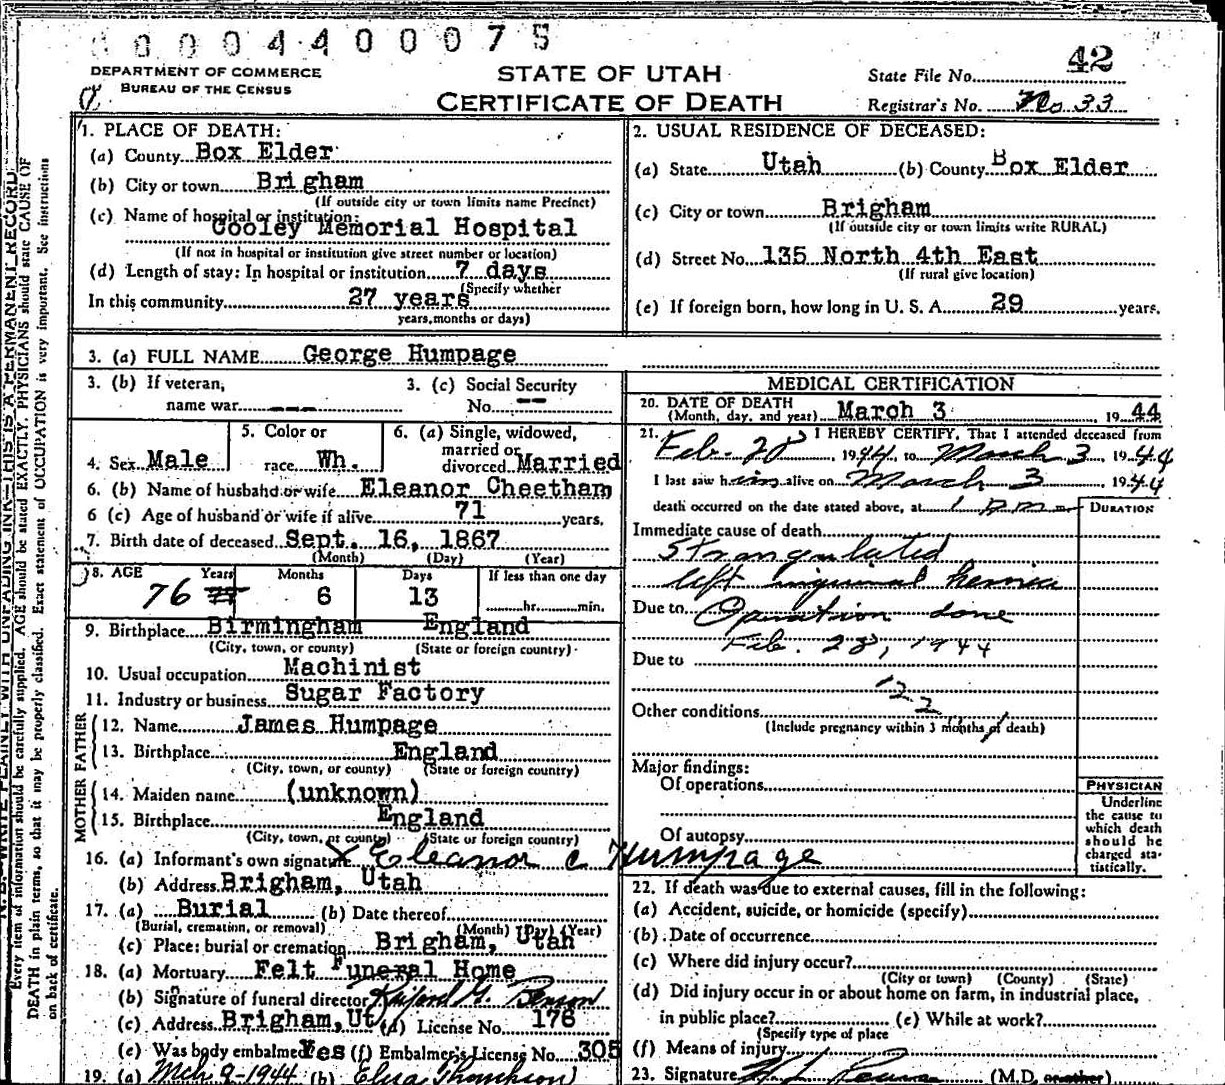 0 0 0 0 4 4 0 0 0 7 5
42
DEPARTMENT OF COMMERCE
BUREAU OF THE CENSUS
STATE OF UTAH
CERTIFICATE OF DEATH
State File No.
Registrar's No. No 33
1. PLACE OF DEATH:
(a) County Box Elder
(b) City or town Brigham
(If outside city or town limits name Precinct)
(c) Name of hospital or institution:
Cooley Memorial Hospital
(If not in hospital or institution give street number or location)
(d) Length of stay: In hospital or institution 7 days
(Specify whether
In this community 27 years
years, months or days)
2. USUAL RESIDENCE OF DECEASED:
(a) State Utah (b) County Box Elder
(c) City or town Brigham
(If outside city or town limits write RURAL)
(d) Street No. 135 North 4th East
(If rural give location)
(e) If foreign born, how long in U. S. A. 29 years.
3. (a) FULL NAME George Humpage
3. (b) If veteran, name war ---
3. (c) Social Security No. --
4. Sex Male
5. Color or race Wh.
6. (a) Single, widowed, married or divorced Married
6. (b) Name of husband or wife Eleanor Cheetham
6 (c) Age of husband or wife if alive 71 years.
7. Birth date of deceased Sept. 16, 1867
(Month) (Day) (Year)
8. AGE Years Months Days If less than one day
76 77 6 13 hr. min.
9. Birthplace Birmingham England
(City, town, or county) (State or foreign country)
10. Usual occupation Machinist
11. Industry or business Sugar Factory
FATHER
12. Name James Humpage
13. Birthplace England
(City, town, or county) (State or foreign country)
MOTHER
14. Maiden name (unknown)
15. Birthplace England
(City, town, or county) (State or foreign country)
16. (a) Informant's own signature X Eleanor C Humpage
(b) Address Brigham, Utah
17. (a) Burial (b) Date thereof
(Burial, cremation, or removal) (Month) (Day) (Year)
(c) Place: burial or cremation Brigham, Utah
18. (a) Mortuary Felt Funeral Home
(b) Signature of funeral director
(c) Address Brigham, Ut (d) License No. 176
(e) Was body embalmed Yes (f) Embalmer's License No. 305
19. (a) Mch 9-1944 (b) Eliza Thompson
MEDICAL CERTIFICATION
20. DATE OF DEATH
(Month, day, and year) March 3 19 44
21. I HEREBY CERTIFY, That I attended deceased from
Feb. 28, 1944, to March 3, 1944
I last saw him alive on March 3 1944
death occurred on the date stated above, at 1 P.m. DURATION
Immediate cause of death
Strangulated
left inguinal hernia
Due to Operation done
Feb. 28, 1944
Due to
122
Other conditions
(Include pregnancy within 3 months of death)
Major findings:
Of operations
Of autopsy
PHYSICIAN
Underline
the cause to
which death
should be
charged sta-
tistically.
22. If death was due to external causes, fill in the following:
(a) Accident, suicide, or homicide (specify)
(b) Date of occurrence
(c) Where did injury occur?
(City or town) (County) (State)
(d) Did injury occur in or about home on farm, in industrial place,
in public place? (e) While at work?
(Specify type of place
(f) Means of injury
23. Signature (M.D. or other)
N. B.—WRITE PLAINLY WITH UNFADING INK—THIS IS A PERMANENT RECORD
Every item of information should be carefully supplied. AGE should be stated EXACTLY. PHYSICIANS should state CAUSE OF
DEATH in plain terms, so that it may be properly classified. Exact statement of OCCUPATION is very important. See instructions
on back of certificate.